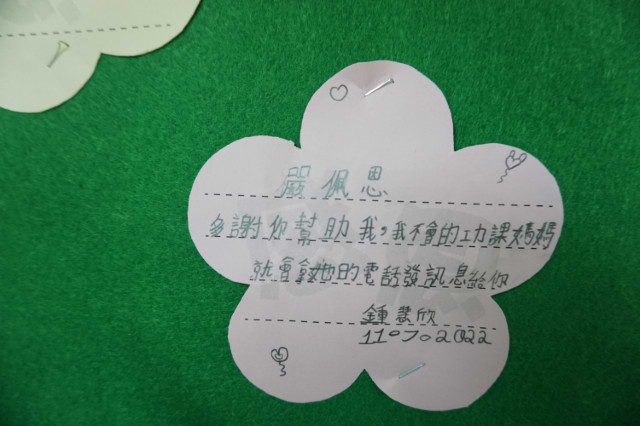 嚴佩恩
多謝你幫助我,我不會的功課媽媽
就會拿她的電話發訊息給你
鍾慧欣
11.7.2022